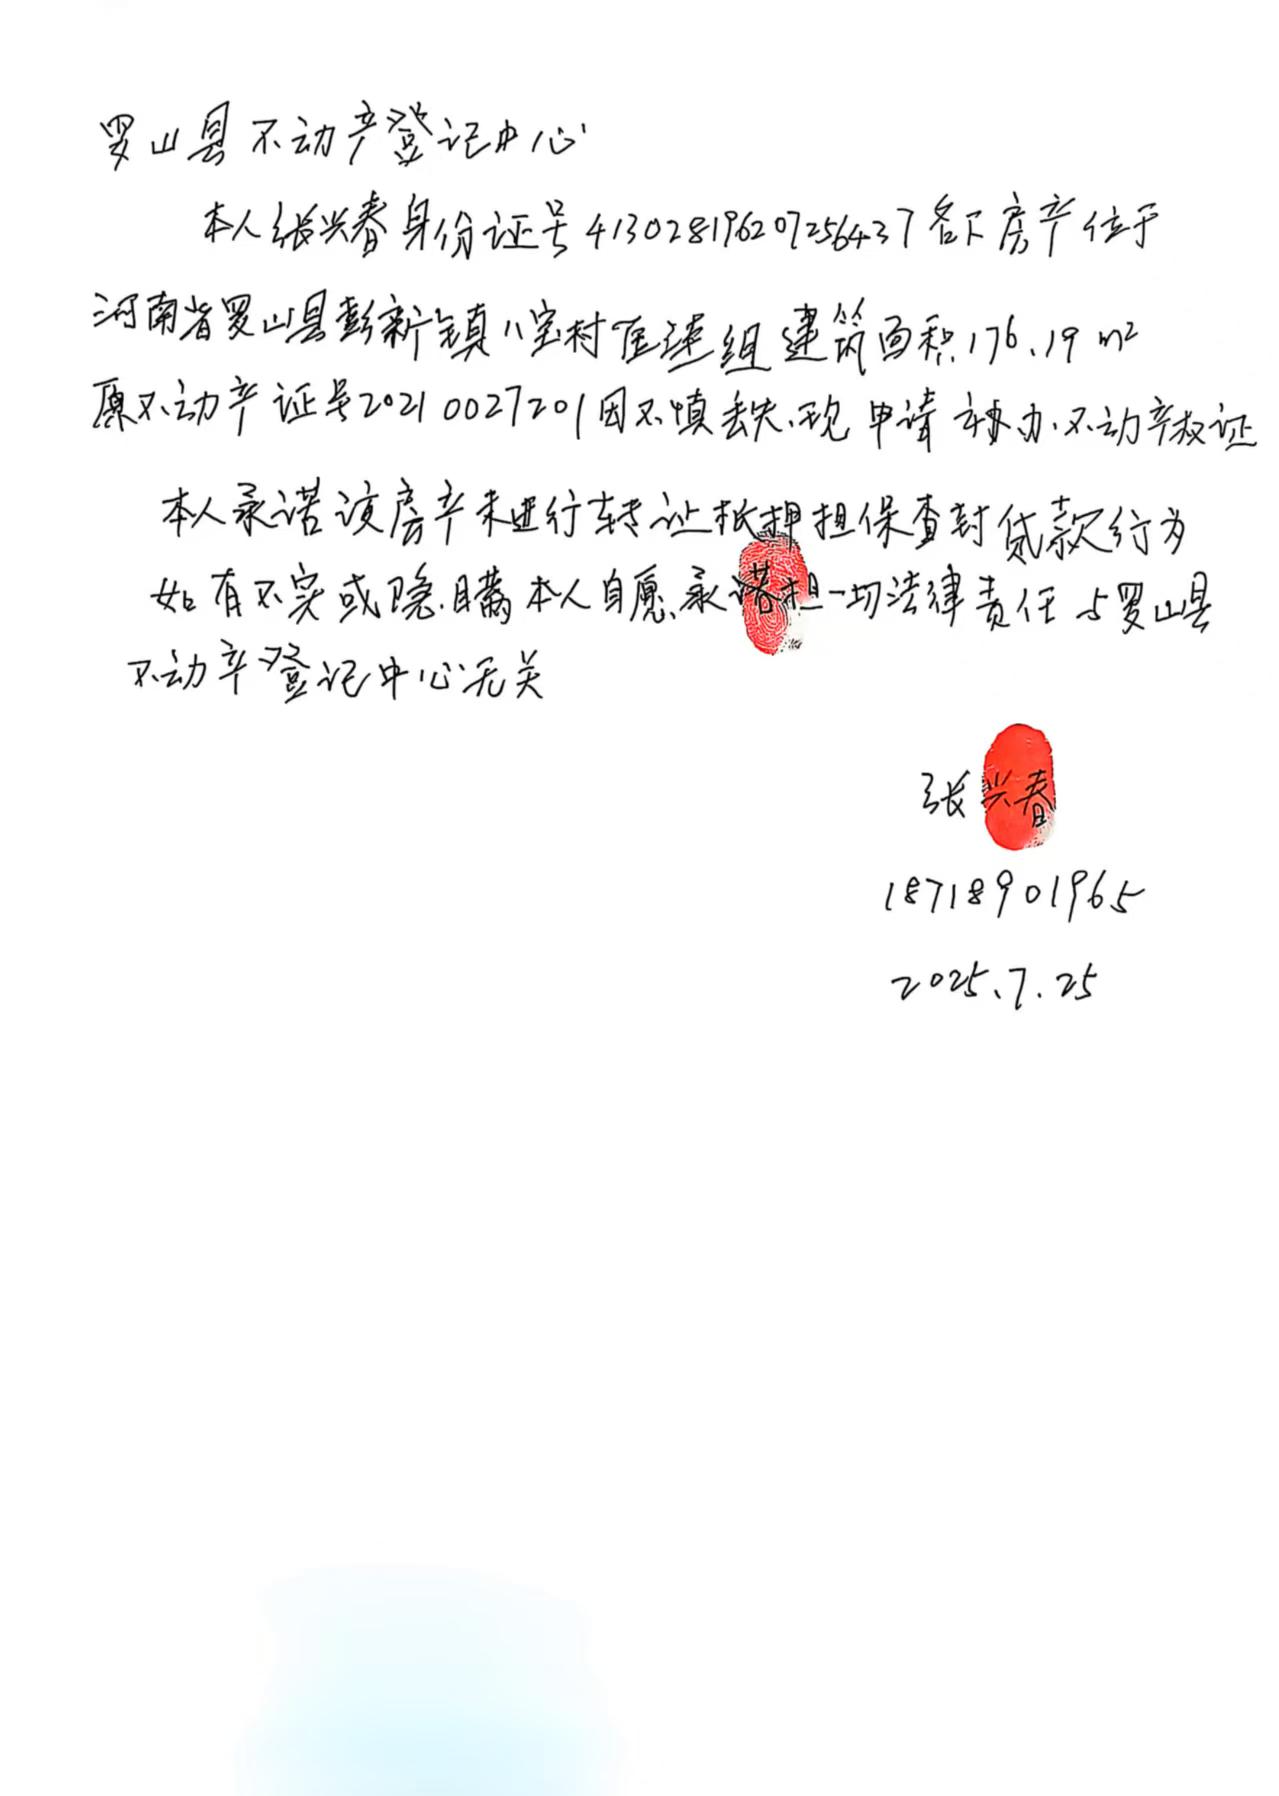 罗山县不动产登记中心
本人张兴春身份证号413028196207256437名下房产位于
河南省罗山县彭新镇八宝村连组建筑面积176.19m²
原不动产证号20210027201因不慎丢失、现申请补办不动产权证
本人承诺该房产未进行转让抵押担保查封贷款行为
如有不实或隐瞒本人自愿承诺担一切法律责任与罗山县
不动产登记中心无关
张兴春
18718901965
2025.7.25